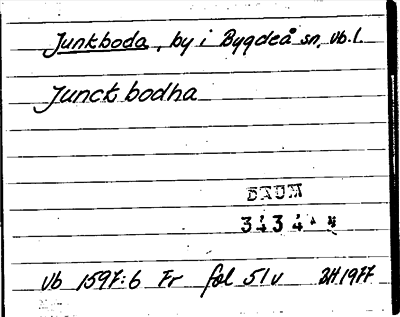 Junkboda, by i Bygdeå sn, Vb.l.
Junckbodha
DAUM
3434
Vb 1597:6 Fr fol 51v 1977